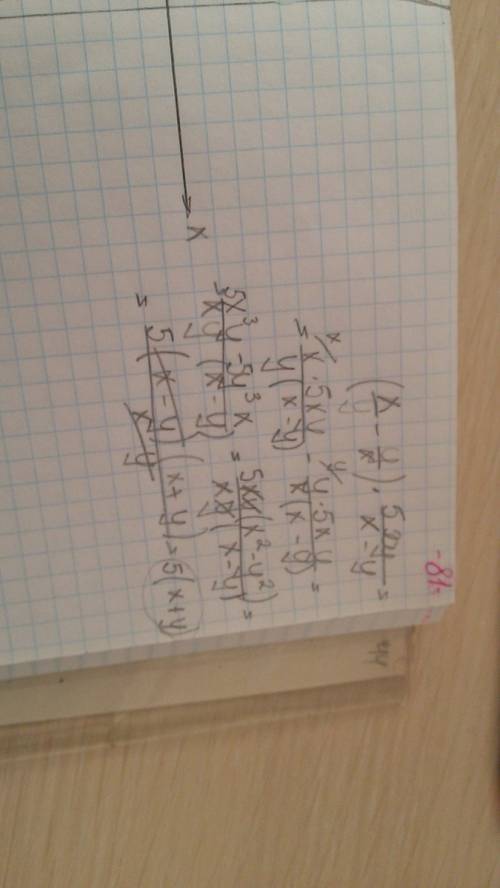 -81
(x/y - y/x) · 5xy/(x-y) =
= x·5xy/(y(x-y)) - y·5xy/(x(x-y)) =
= (5x³y - 5y³x)/(xy(x-y)) = 5xy(x²-y²)/(xy(x-y)) =
= 5(x-y)(x+y)/(x-y) = 5(x+y)
x